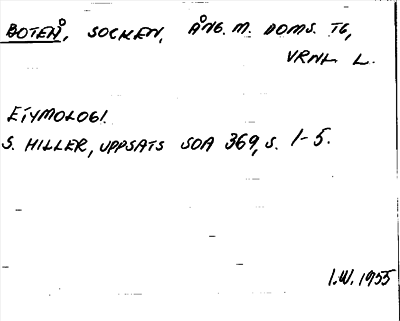 BOTEÅ, SOCKEN, ÅNG. M. DOMS. TG,
VRNL L.
ETYMOLOGI.
S. HILLER, UPPSATS SOA 369, S. 1-5.
I.W. 1955